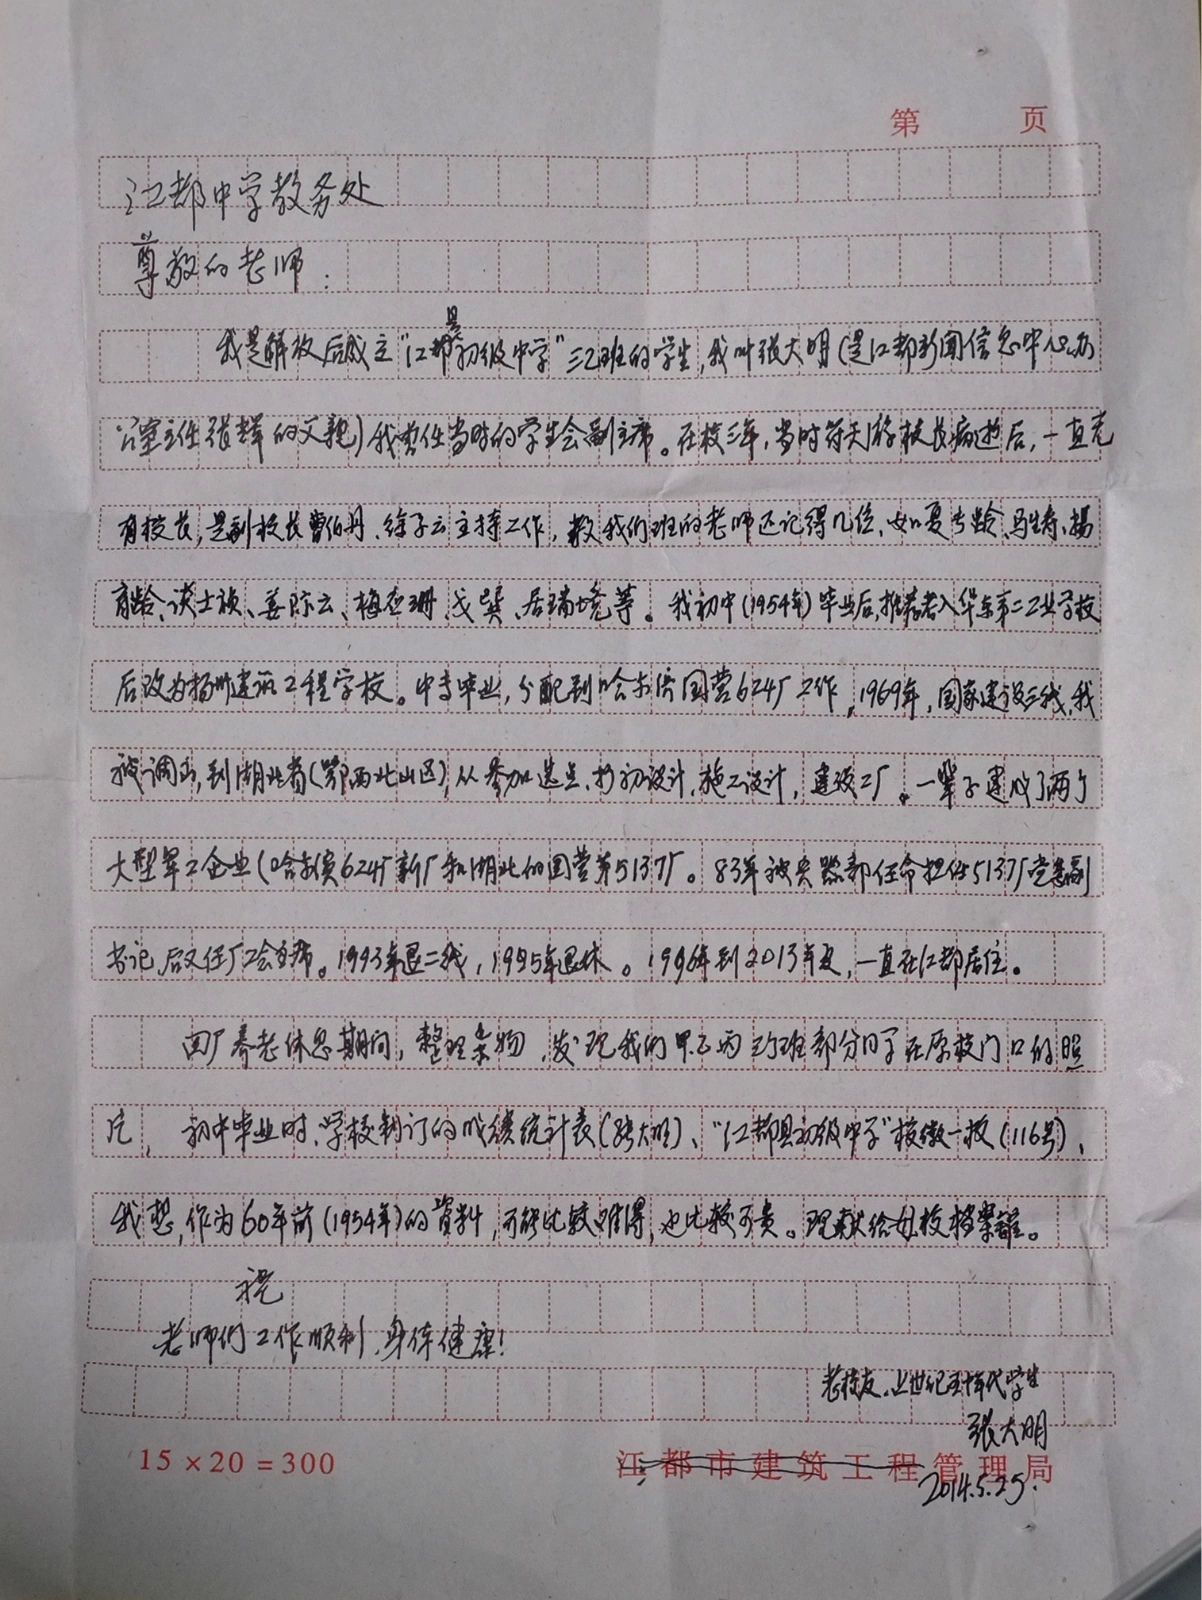 第 页
江都中学教务处
尊敬的老师：
我是解放后成立“江都县初级中学”三乙班的学生，我叫张大明（是江都新闻信息中心办
公室主任张辉的父亲）我曾任当时的学生会副主席。在校三年，当时符天游校长病逝后，一直无
有校长，是副校长曹伯丹、徐子云主持工作，教我们班的老师还记得几位、如夏寿龄、马生寿、杨
育龄、谈士祯、姜际云、梅亚珊、戈巽、居瑞境等。我初中（1954年）毕业后，推荐考入华东第二工业学校
后改为扬州建筑工程学校。中专毕业，分配到哈尔滨国营624厂工作，1969年，国家建设三线，我
被调出，到湖北省（鄂西北山区），从参加选点、扩初设计，施工设计，建设工厂。一辈子建成了两个
大型军工企业（哈尔滨624厂新厂和湖北的国营第5137厂。83年被兵器部任命担任5137厂党委副
书记，后又任厂工会主席。1993年退二线，1995年退休。1996年到2013年，一直在江都居住。
回厂养老休息期间，整理杂物，发现我们甲乙丙三个班部分同学在原校门口的照
片，初中毕业时，学校制订的成绩统计表（张大明）、“江都县初级中学”校徽一枚（116号），
我想，作为60年前（1954年）的资料，可能比较难得，也比较可贵。现献给母校档案馆。
祝
老师们工作顺利，身体健康！
老校友，上世纪五十年代学生
张大明
15×20=300 江都市建筑工程管理局
2014.5.25.